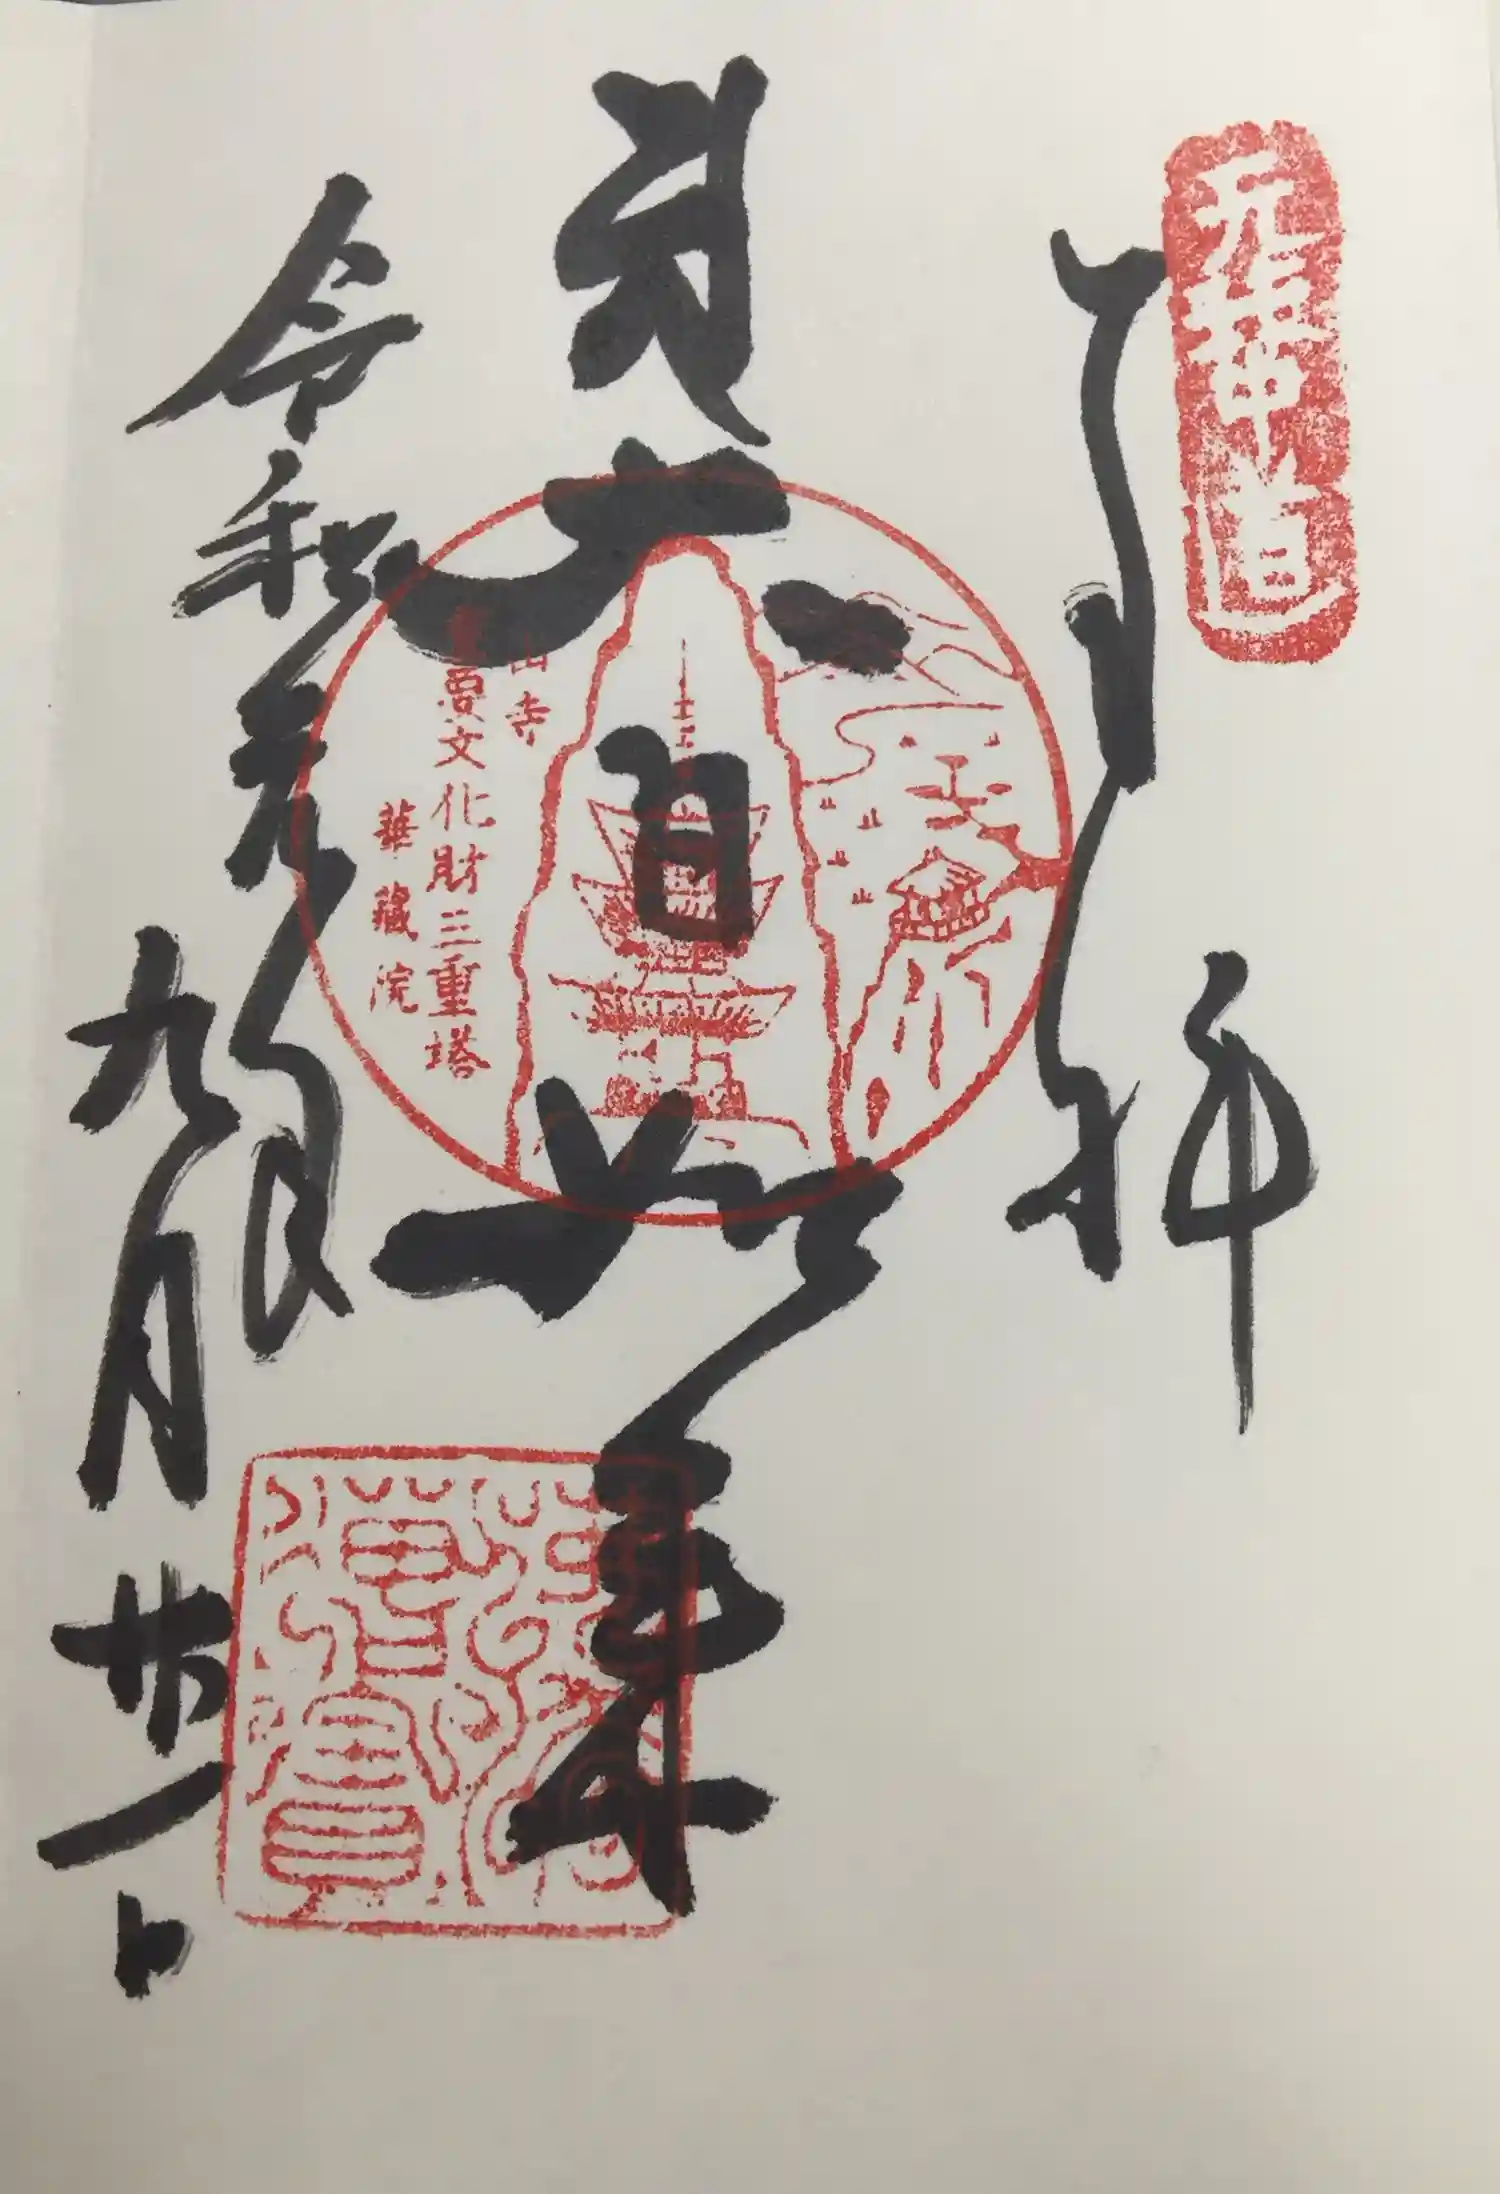 奉拝
大日如来
山寺
重要文化財三重塔
華藏院
令和元年
九月廿一日